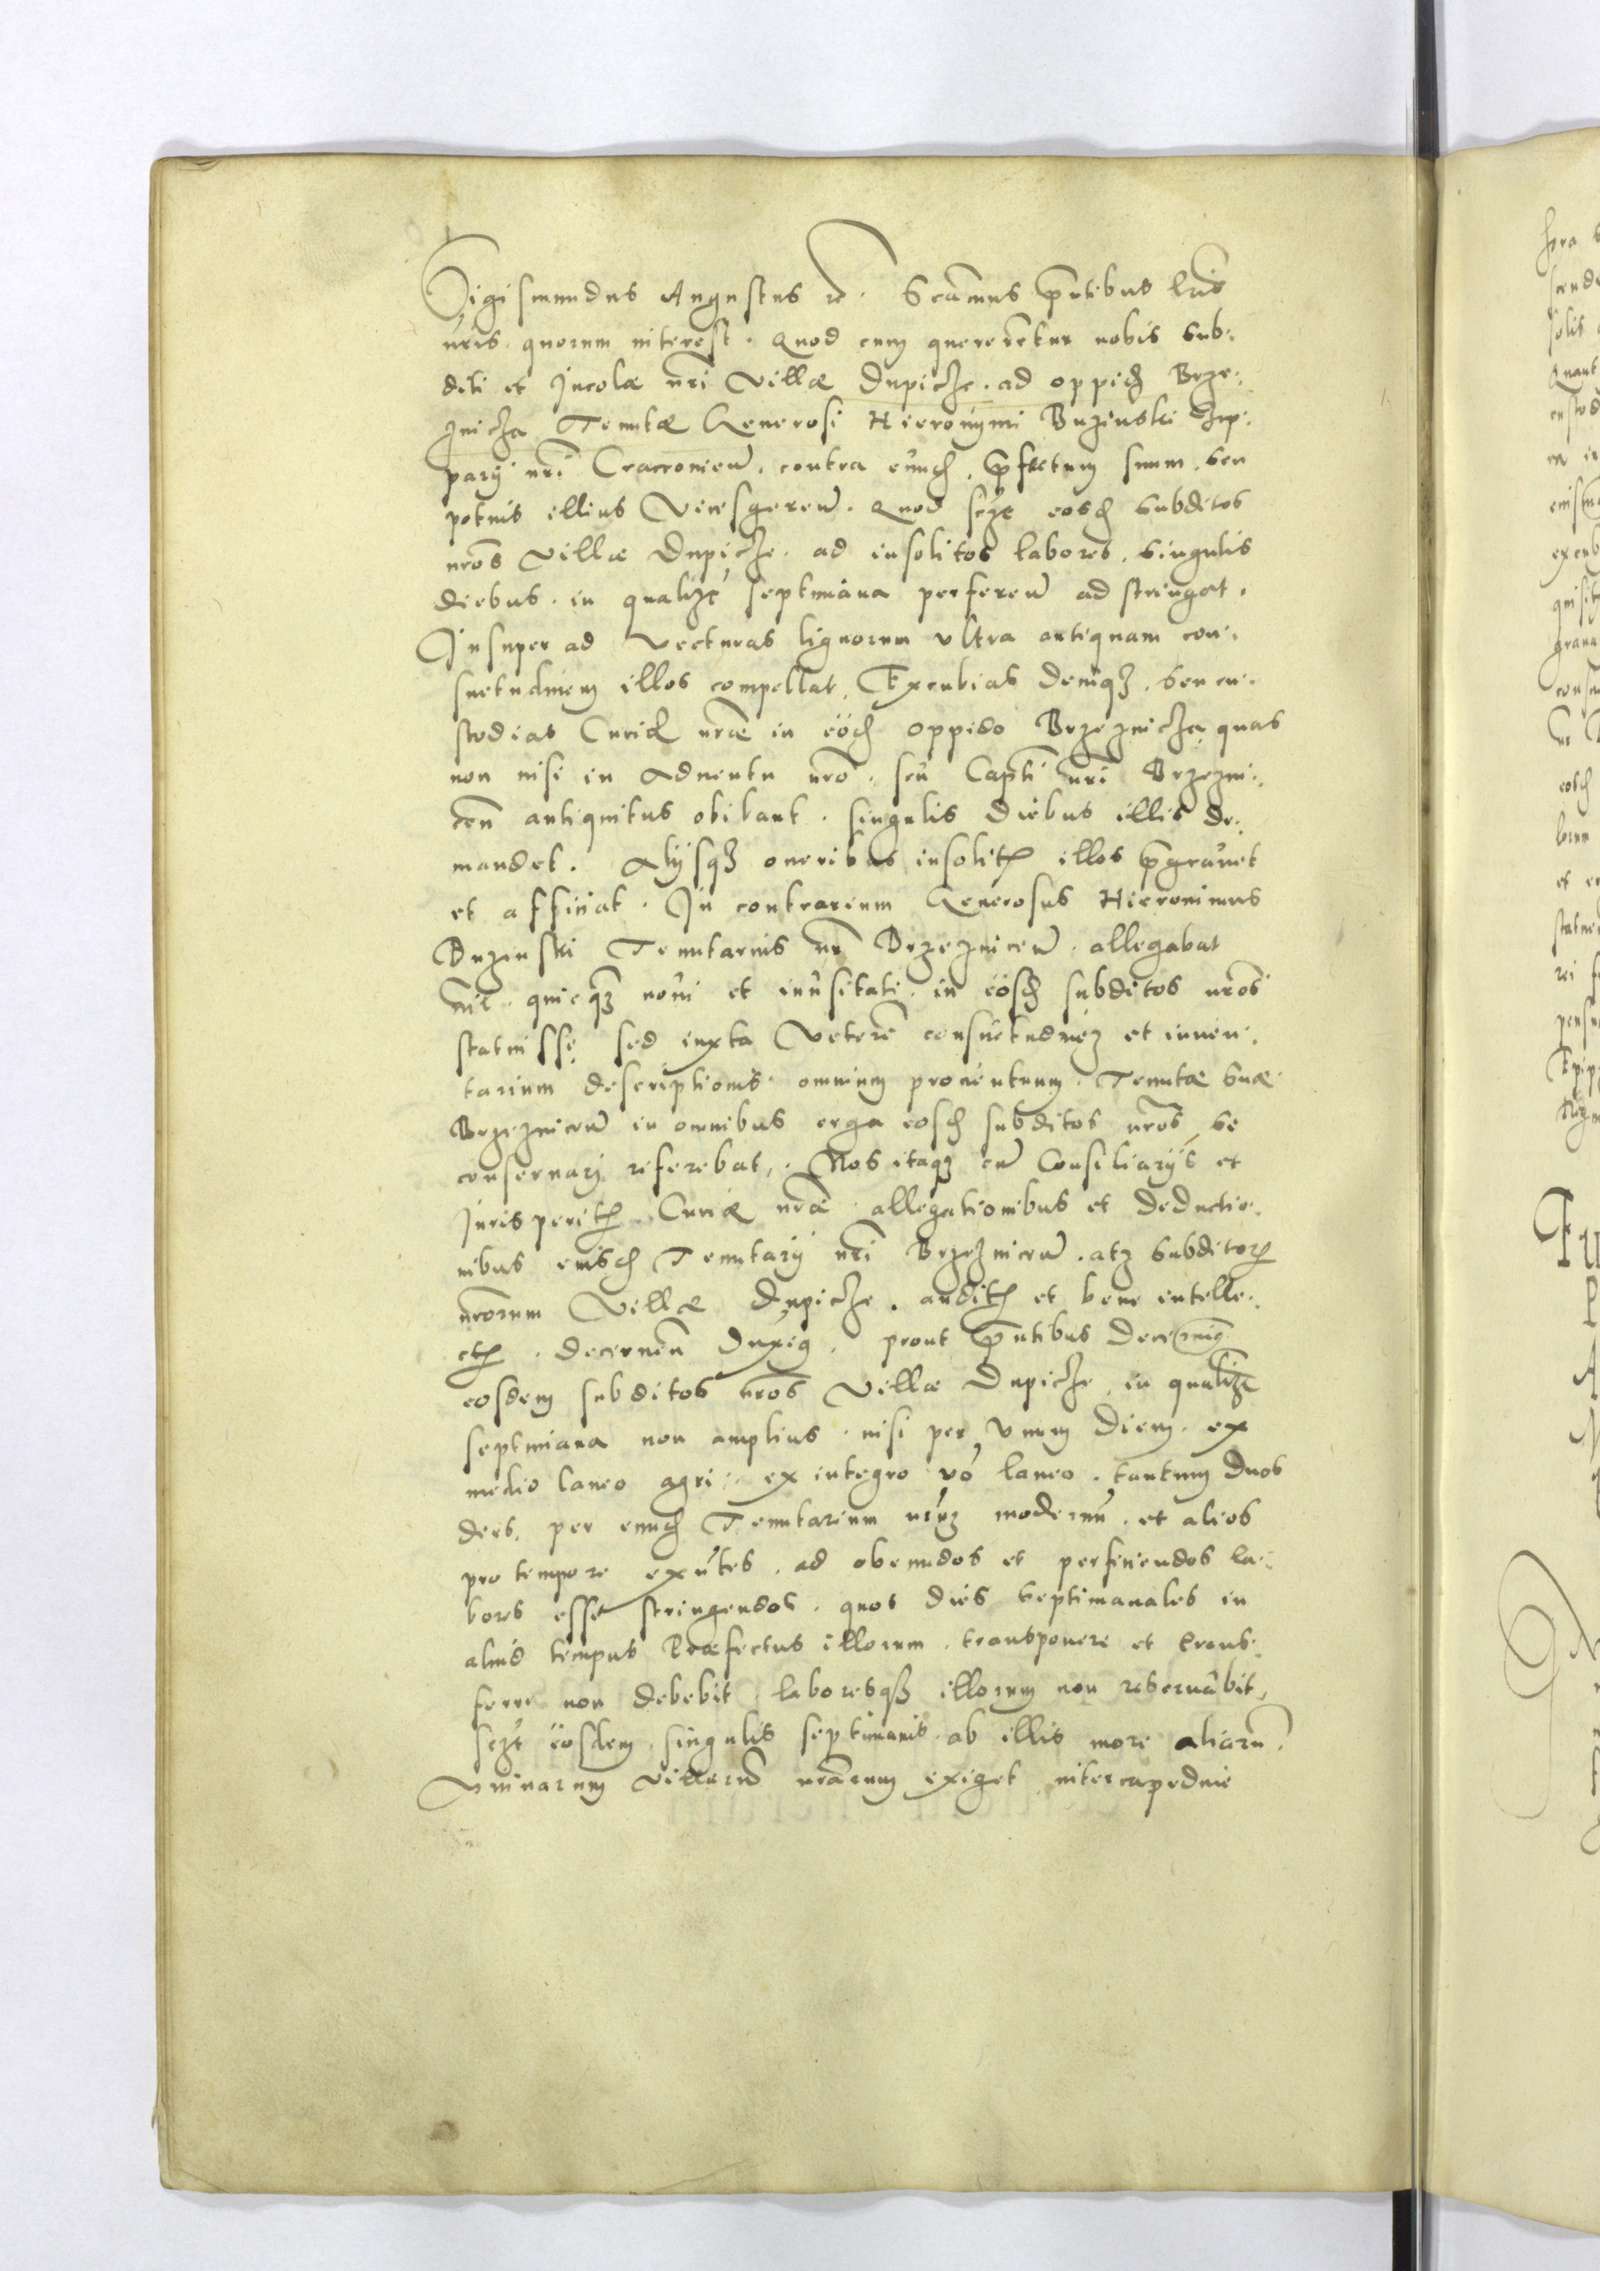 Sigismundus Augustus rc. Scamus pntibus lris
nris quorum interest. Quod cum quererentur nobis sub-
diti et Incolæ nri villæ Dupicze ad oppid Brze-
znicza Tenutæ Generosi Hieronymi Buzinski Zup-
parij nri Cracoviem. contra eund. pfectum suum seu
potius illius Vicesgerem. Quod scze eosd subditos
nros villæ Dupicze ad insolitos labores singulis
diebus in qualizt septimana perferem ad stringat.
Insuper ad vecturas lignorum vltra antiquam con-
suetudinem illos compellat, Excubias deniqz seu cu-
stodias Curiæ nræ in eod oppido Brzeznicza quas
non nisi in Aduentu nro seu Capti nri Brzezni-
cen antiquitus obibant. singulis diebus illis de-
mandet. Alijsqz oneribus insolit illos pgrauet
et afficiat. In contrarium Generosus Hieronimus
Buzenski Tenutarius nr Brzeznicem allegabat
nil quicqz noui et inusitati in eosd subditos nros
statuisse, sed iuxta Veterē consuetudinez et inuen-
tarium descriptionis omnium prouentuum Tenutæ suæ
Brzeznicem in omnibus erga eosd subditos nros se
conseruari referebat. Nos itaqz cum Consiliarijs et
Iuris perit Curiæ nræ allegationibus et deductio-
nibus eiusd Tenutarij nri Brzeznicem. atz subditor
nrorum Villæ Dupicze. audit et bene intelle-
ct. decernen duxim. prout pntibus decernim
eosdem subditos nros villæ Dupicze in qualizt
septimana non amplius nisi per vnum diem ex
medio laneo agri. ex integro vo laneo tantum duos
dies, per eund Tenutarium nrum modernu et alios
pro tempore exntes ad obeundos et perficiendos la-
bores esse stringendos. quos dies septimanales in
aliud tempus Præfectus illorum transponere et trans-
ferre non debebit laboresqz illorum non reseruabit,
sezt eosdem singulis septimanis ab illis more aliaru
vicinarum villarum nrarum exiget intercapedine